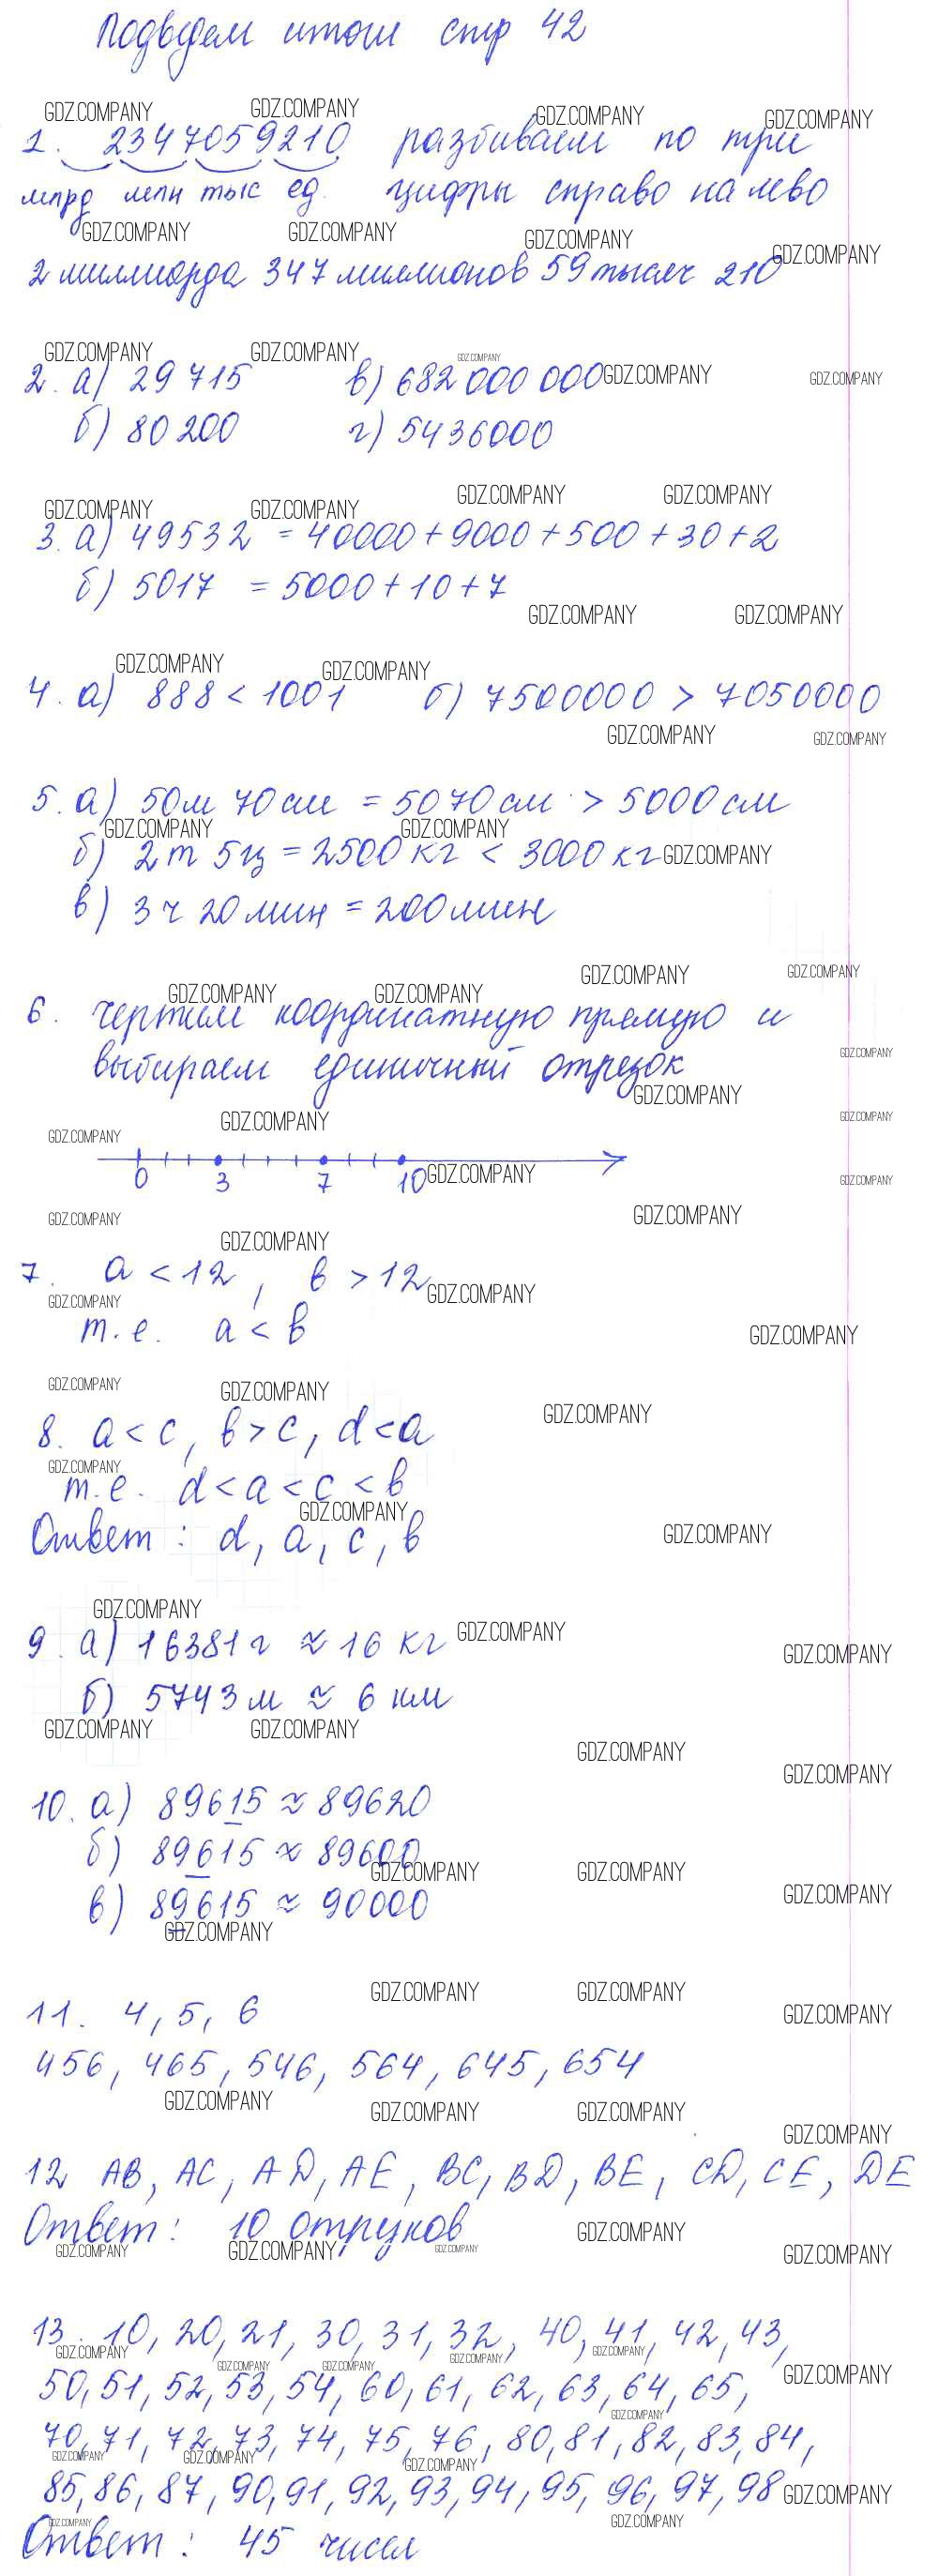 Подведем итоги стр 42
GDZ.COMPANY GDZ.COMPANY GDZ.COMPANY GDZ.COMPANY
1. 2347059210 разбиваем по три
млрд млн тыс ед. цифры справо на лево
GDZ.COMPANY GDZ.COMPANY GDZ.COMPANY GDZ.COMPANY
2 миллиарда 347 миллионов 59 тысяч 210
GDZ.COMPANY GDZ.COMPANY GDZ.COMPANY
2. а) 29715 в) 682 000 000 GDZ.COMPANY GDZ.COMPANY
б) 80200 г) 5436000
GDZ.COMPANY GDZ.COMPANY GDZ.COMPANY GDZ.COMPANY
3. а) 49532 = 40000 + 9000 + 500 + 30 + 2
б) 5017 = 5000 + 10 + 7
GDZ.COMPANY GDZ.COMPANY
GDZ.COMPANY GDZ.COMPANY
4. а) 888 < 1001 б) 7500000 > 7050000
GDZ.COMPANY GDZ.COMPANY
5. а) 50м 70см = 5070см > 5000см
GDZ.COMPANY GDZ.COMPANY
б) 2т 5ц = 2500кг < 3000кг GDZ.COMPANY
в) 3ч 20мин = 200мин
GDZ.COMPANY GDZ.COMPANY
GDZ.COMPANY GDZ.COMPANY
6. чертим координатную прямую и
GDZ.COMPANY
выбираем единичный отрезок
GDZ.COMPANY
GDZ.COMPANY GDZ.COMPANY GDZ.COMPANY
0 3 7 10 GDZ.COMPANY GDZ.COMPANY
GDZ.COMPANY GDZ.COMPANY
GDZ.COMPANY
7. а < 12, в > 12 GDZ.COMPANY
GDZ.COMPANY
т.е. а < в GDZ.COMPANY
GDZ.COMPANY GDZ.COMPANY GDZ.COMPANY
8. а < с, в > с, d < а
GDZ.COMPANY
т.е. d < а < с < в
GDZ.COMPANY
Ответ: d, а, с, в GDZ.COMPANY
GDZ.COMPANY
9. а) 16381г ≈ 16 кг GDZ.COMPANY GDZ.COMPANY
б) 5743м ≈ 6 км
GDZ.COMPANY GDZ.COMPANY GDZ.COMPANY GDZ.COMPANY
10. а) 89615 ≈ 89620
б) 89615 ≈ 89600
GDZ.COMPANY GDZ.COMPANY GDZ.COMPANY
в) 89615 ≈ 90000
GDZ.COMPANY
GDZ.COMPANY GDZ.COMPANY GDZ.COMPANY
11. 4, 5, 6
456, 465, 546, 564, 645, 654
GDZ.COMPANY GDZ.COMPANY GDZ.COMPANY GDZ.COMPANY
12 AB, AC, AD, AE, BC, BD, BE, CD, CE, DE
Ответ: 10 отрузков GDZ.COMPANY
GDZ.COMPANY GDZ.COMPANY GDZ.COMPANY GDZ.COMPANY
13. 10, 20, 21, 30, 31, 32, 40, 41, 42, 43,
GDZ.COMPANY GDZ.COMPANY GDZ.COMPANY
GDZ.COMPANY GDZ.COMPANY GDZ.COMPANY
50, 51, 52, 53, 54, 60, 61, 62, 63, 64, 65,
GDZ.COMPANY
70, 71, 72, 73, 74, 75, 76, 80, 81, 82, 83, 84,
GDZ.COMPANY GDZ.COMPANY GDZ.COMPANY
85, 86, 87, 90, 91, 92, 93, 94, 95, 96, 97, 98 GDZ.COMPANY
GDZ.COMPANY GDZ.COMPANY
Ответ: 45 чисел